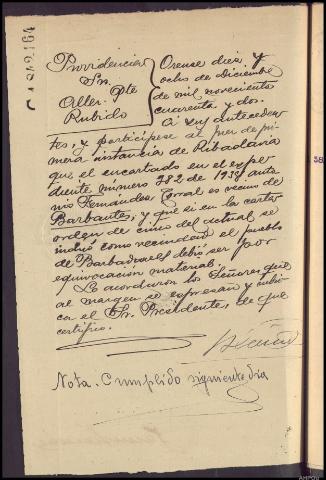 C.1.842.164
Providencia
Srs.
Aller. Pte
Rubido
Orense diez y
ocho de diciembre
de mil novecientos
cuarenta y dos.
A sus anteceden
tes, y participese al Juez de pri
mera instancia de Ribadavia
que el encartado en el expe
diente número 282 de 1938, anto
nio Fernández Corral es vecino de
Barbantes, y que si en la carta
orden de cinco del actual se
indicó como vecindad el pueblo
de debió ser por
equivocación material.
Lo acordaron los Señores que
al margen se expresan y rubri
ca el Sr. Presidente, de que
certifico.
Nota. Cumplido siguiente día